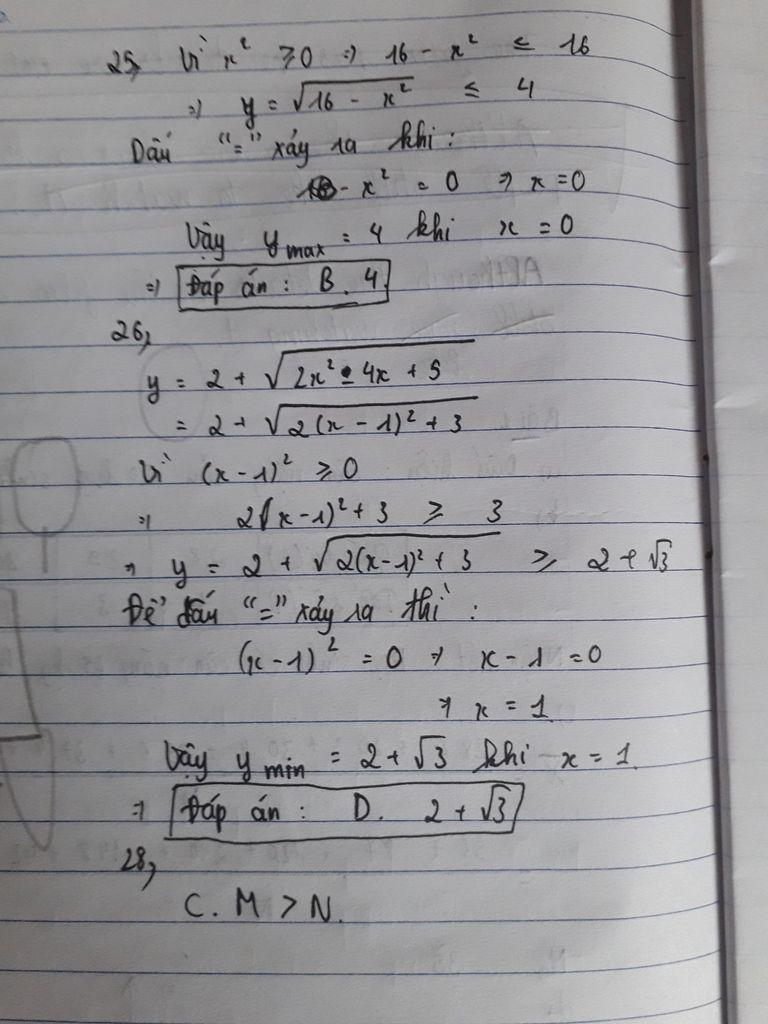 25, Vì x² ≥ 0 ⇒ 16 - x² ≤ 16
⇒ y = √(16 - x²) ≤ 4
Dấu "=" xảy ra khi:
- x² = 0 ⇒ x = 0
Vậy y max = 4 khi x = 0
⇒ Đáp án : B. 4
26,
y = 2 + √(2x² - 4x + 5)
= 2 + √(2(x - 1)² + 3)
Vì (x - 1)² ≥ 0
⇒ 2(x - 1)² + 3 ≥ 3
⇒ y = 2 + √(2(x - 1)² + 3) ≥ 2 + √3
Để dấu "=" xảy ra thì :
(x - 1)² = 0 ⇒ x - 1 = 0
⇒ x = 1
Vậy y min = 2 + √3 khi x = 1
⇒ Đáp án : D. 2 + √3
28,
C. M > N.